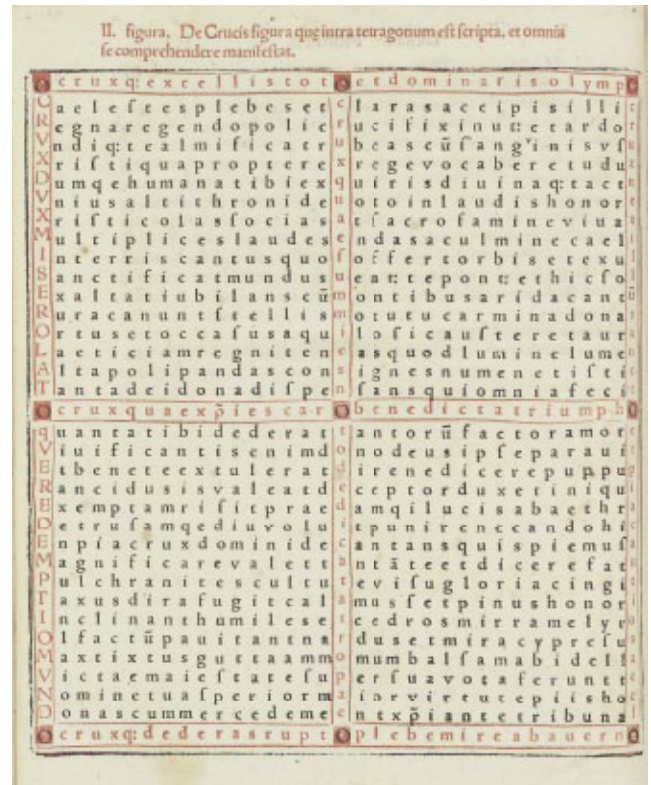 II. figura. De Crucis figura quę intra tetragonum est ſcripta, et omnia
ſe comprehendere maniſeſtat.
O cruxq:excellistot O etdominarisolymp O
C aeleſtesplebeset c larasaccipisilli
R egnaregendopolie r ucifixinut:etardo
V ndiq:tealmificatr u beascūſang'inisvſ
X riſtiquaproptere x regevocaberetudu
D umqehumanatibiex q uirisdiuinaq:tact
V niusaltithronide u otoinlaudishonor
X riſticolasſocias a tſacroſamineviua
M ultipliceslaudes e ndasaculminecael
I nterriscantusquo ſ offertorbisetexu
S anctificatmundus u eat:tepont:ethicſo
E xaltatiubilanscū m ontibusaridacant
R uracanuntſtellis m otutucarminadona
O rtusetoccaſusaqu i loſicauſteretaur
L aeticiamregniten e asquodluminelume
A ltapolipandascon s ignesnumenetiſti
T antadeidonadiſpe n ſansquiomniafeci
O cruxquaexp̄iescar O benedictatriumph O
q uantatibidederat t antorūfactoramor
V iuificantisenimd o nodeusipſeparaui
E tbeneteextulerat d irenedicerepuppu
R ancidusisvaleatd e ceptorduxetiniqu
E xemptamriſitprae d amqilucisabaethr
D etruſamqediuvolu i tpunirenecandohi
E npiacruxdominide c antansquispiemuſ
M agnificarevalett a ntāteetdicerefat
P ulchranitescultu t evifugloriacingi
T axusdirafugitcal a musſetpinushonor
I nclinanthumilese t cedrosmirramelyr
O lfactūpauitantna r dusetmiracypreſu
M axtixtusguttaamm o mumbalſamabidell
V ictaemaieſtateſu p erſuavotaferuntt
N ominetuaſperiorm a iorvirtutepiisho
D onascummercedeme e ntxp̄iantetribuna
O cruxq:dederasrupt O plebemireabauern O